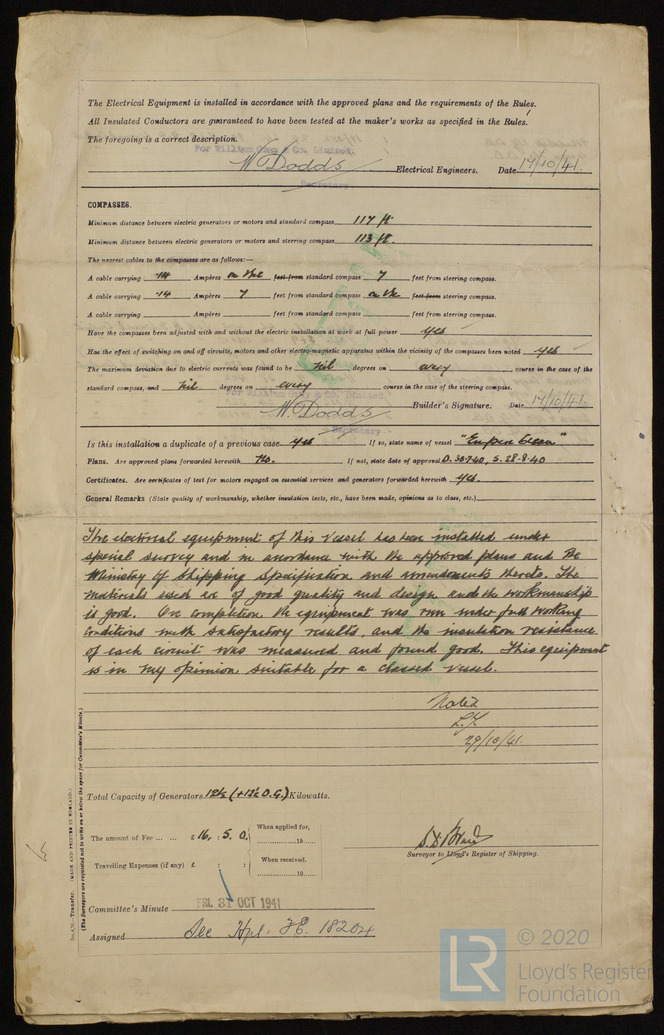 The Electrical Equipment is installed in accordance with the approved plans and the requirements of the Rules.
All Insulated Conductors are guaranteed to have been tested at the maker's works as specified in the Rules.
The foregoing is a correct description.
For William & Co. Limited.
W Dodds Electrical Engineers. Date 17/10/41.
Secretary
COMPASSES.
Minimum distance between electric generators or motors and standard compass 117 ft
Minimum distance between electric generators or motors and steering compass 113 ft.
The nearest cables to the compasses are as follows:—
A cable carrying .14 Ampères on the feet from standard compass 7 feet from steering compass.
A cable carrying .14 Ampères 7 feet from standard compass on the feet from steering compass.
A cable carrying Ampères feet from standard compass feet from steering compass.
Have the compasses been adjusted with and without the electric installation at work at full power yes
Has the effect of switching on and off circuits, motors and other electro-magnetic apparatus within the vicinity of the compasses been noted yes
The maximum deviation due to electric currents was found to be Nil degrees on every course in the case of the
standard compass, and Nil degrees on every course in the case of the steering compass.
For & Co. Limited.
W. Dodds Builder's Signature. Date 17/10/41
Secretary
Is this installation a duplicate of a previous case Yes If so, state name of vessel "Empire
Plans. Are approved plans forwarded herewith No. If not, state date of approval D. 30.7.40, S. 28.8.40
Certificates. Are certificates of test for motors engaged on essential services and generators forwarded herewith Yes.
General Remarks (State quality of workmanship, whether insulation tests, etc., have been made, opinions as to class, etc.)
The electrical equipment of this vessel has been installed under
special survey and in accordance with the approved plans and the
Ministry of Shipping Specification and amendments thereto. The
materials used are of good quality and design and the workmanship
is good. On completion the equipment was run under full working
conditions with satisfactory results, and the insulation resistance
of each circuit was measured and found good. This equipment
is in my opinion suitable for a classed vessel.
Noted
29/10/41.
Total Capacity of Generators Kilowatts.
The amount of Fee ... ... £ 16 : 5 : 0 : When applied for, 19
Travelling Expenses (if any) £ : : When received. 19
Surveyor to Lloyd's Register of Shipping.
Committee's Minute FRI. 31 OCT 1941
Assigned See Hpl. F.E. 18204
(MADE AND PRINTED IN ENGLAND.)
(The Surveyors are requested not to write on or below the space for Committee's Minute.)
LR © 2020
Lloyd's Register
Foundation